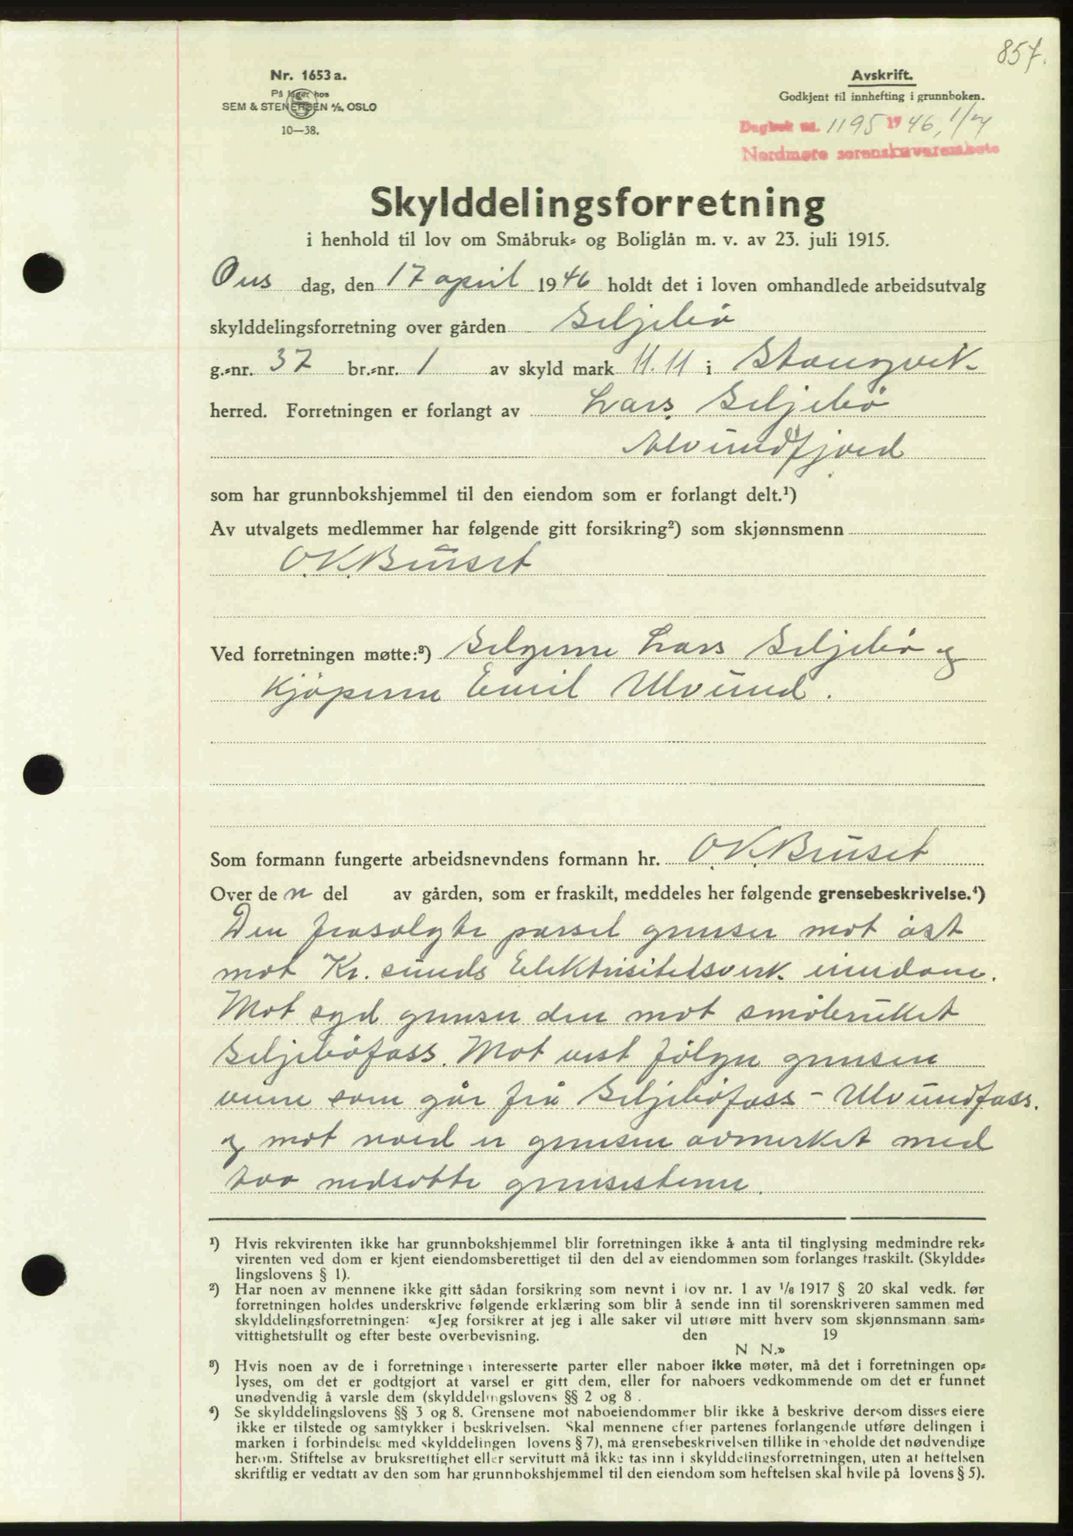 857.
Nr. 1653 a.
På lager hos
SEM & STENERSEN A/S, OSLO
10—38.
Avskrift.
Godkjent til innhefting i grunnboken.
Dagbok nr. 1195 19 46, 1/7
Nordmøre sorenskriverembete
Skylddelingsforretning
i henhold til lov om Småbruk- og Boliglån m. v. av 23. juli 1915.
Ons dag, den 17 april 1946 holdt det i loven omhandlede arbeidsutvalg
skylddelingsforretning over gården Siljebö
g.-nr. 37 br.-nr. 1 av skyld mark 11.11 i Stangvik
herred. Forretningen er forlangt av Lars Siljebö
Alvundfjord
som har grunnbokshjemmel til den eiendom som er forlangt delt.¹)
Av utvalgets medlemmer har følgende gitt forsikring²) som skjønnsmenn
O.K. Bruset
Ved forretningen møtte:³) Selgeren Lars Siljebö og
Kjöperen Emil Ulvund.
Som formann fungerte arbeidsnevndens formann hr. O.K. Bruset
Over de n del av gården, som er fraskilt, meddeles her følgende grensebeskrivelse.⁴)
Den frasolgte parsel grenser mot öst
mot Kr. sunds Elektrisitetsverk eiendom.
Mot syd grenser den mot småbruket
Siljeböfoss. Mot vest fölger grensen
veien som går frå Siljeböfoss - Ulvundfoss.
og mot nord er grensen avmerket med
too nedsatte grensestener.
¹) Hvis rekvirenten ikke har grunnbokshjemmel blir forretningen ikke å anta til tinglysing medmindre rek-
virenten ved dom er kjent eiendomsberettiget til den del av eiendommen som forlanges fraskilt. (Skyldde-
lingslovens § 1).
²) Har noen av mennene ikke gitt sådan forsikring som nevnt i lov nr. 1 av 1/6 1917 § 20 skal vedk. før
forretningen holdes underskrive følgende erklæring som blir å sende inn til sorenskriveren sammen med
skylddelingsforretningen: «Jeg forsikrer at jeg i alle saker vil utføre mitt hverv som skjønnsmann sam-
vittighetsfullt og efter beste overbevisning. den 19
N N.»
³) Hvis noen av de i forretningen interesserte parter eller naboer ikke møter, må det i forretningen op-
lyses, om det er godtgjort at varsel er gitt dem, eller for naboers vedkommende om det er funnet
unødvendig å varsle dem (skylddelingslovens §§ 2 og 8.
⁴) Se skylddelingslovens §§ 3 og 8. Grensene mot naboeiendommer blir ikke å beskrive dersom disses eiere
ikke er tilstede og samtykker i beskrivelsen. Skal mennene efter partenes forlangende utføre delingen i
marken i forbindelse med skylddelingen lovens § 7), må grensebeskrivelsen tillike inneholde det nødvendige
herom. Stiftelse av bruksrettighet eller servitutt må ikke tas inn i skylddelingsforretningen, uten at heftelsen
skriftlig er vedtatt av den som har grunnbokshjemmel til den eiendom som heftelsen skal hvile på lovens § 5).